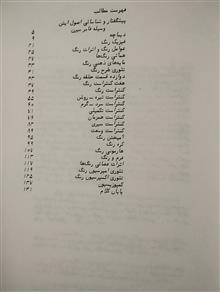 فهرست مطالب
پیشگفتار و شناسائی اصول ایتن
وسیله فابر سیبن
دیباچه ۵
فیزیک رنگ ۹
عوامل رنگ و اثرات رنگ
هماهنگی رنگها
مایه‌های ذهنی رنگ
تئوری طرح رنگ
دوازده قسمت حلقه رنگ
هفت کنتراست رنگ
کنتراست رنگ
کنتراست تیره ـ روشن
کنتراست سرد ـ گرم ۶۴
کنتراست تکمیلی ۷۱
کنتراست همزمان ۷۶
کنتراست سیری ۸۳
کنتراست وسعت ۸۹
آمیختن رنگ ۹۵
کره رنگ ۹۹
هارمونی رنگ ۱۰۷
فرم و رنگ ۱۱۳
اثرات فضائی رنگها ۱۱۷
تئوری امپرسیون رنگ ۱۱۹
تئوری اکسپرسیون رنگ ۱۲۵
کمپوزیسیون ۱۳۷
پایان کلام ۱۴۱